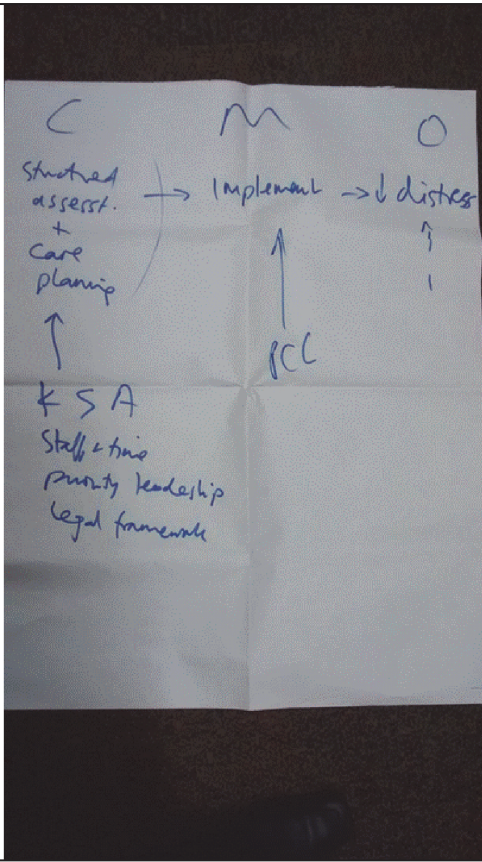 C M O
Structured
assesst.
+
Care
planning
→ Implement → ↓ distress
PCC
K S A
Staff + time
priority leadership
Legal framework